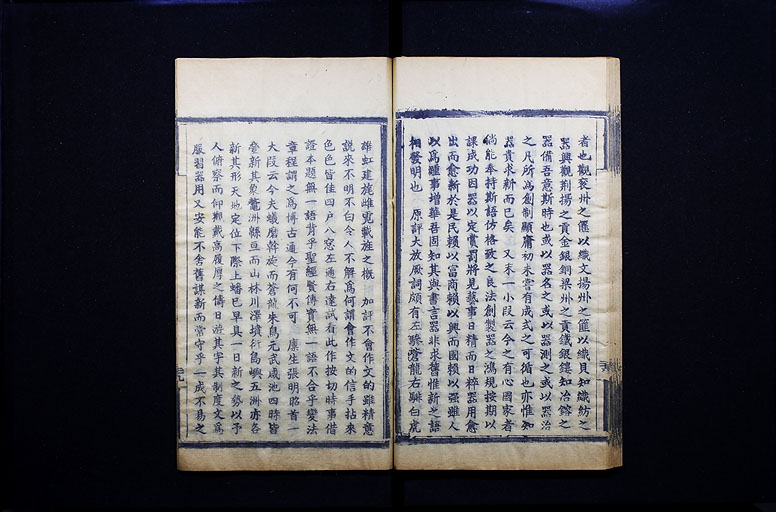 者也觀兗州之篚以織文揚州之篚以織貝知織紡之
器興觀荆揚之貢金銀銅梁州之貢鐵銀鏤知冶鎔之
器備吾意斯時也或以器名之或以器測之或以器治
之凡所爲創制顯庸初未嘗有成式之可循也亦惟知
器貴求新而已矣 又末一小段云今之有心國家者
倘能奉持斯語仿格致之良法創製器之鴻規按期以
課成功因器以定賞罰將見藝事日精而日粹器用愈
出而愈新於是民賴以富商賴以興而國賴以强雖人
以爲踵事增華吾固知其與書言器非求舊惟新之語
相發明也 原評大放厥詞頗有左驂蒼龍右騑白虎
雄虹建旄雌霓載旌之概 加評不會作文的雖精意
說來不明不白令人不解爲何謂會作文的信手拈來
色色皆佳四戶八窓左通右達試看此作按切時事借
證本題無一語背乎聖經賢傳實無一語不合乎變法
章程謂之爲博古通今有何不可 廩生張明昭首一
大段云今夫蟻磨斡旋而蒼龍朱鳥元武咸池四時皆
新其象鼇洲縣亘而山林川澤墳衍島嶼五洲亦各
新其形天地定位下際上蟠已早具一日新之勢以予
人俯察而仰觀戴高履厚之儔日遊其宇其制度文爲
服習器用又安能不舍舊謀新而常守乎一成不易之